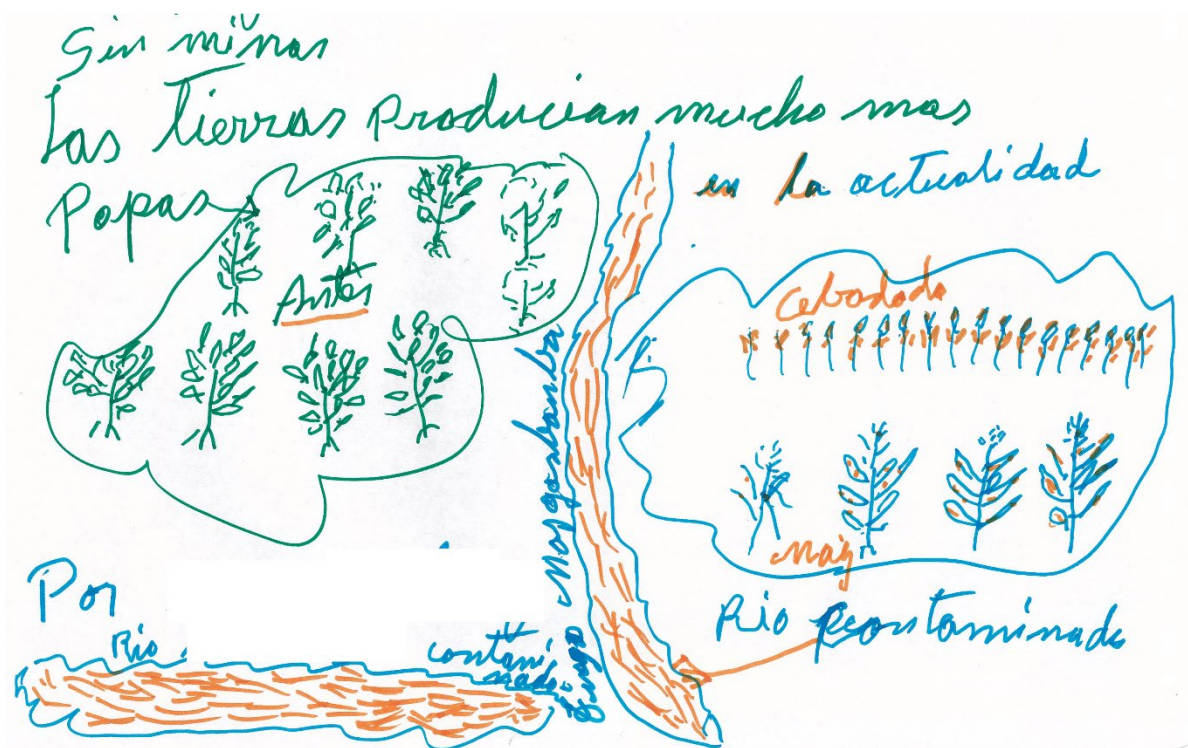 Sin minas
Las tierras producian mucho mas
Papas
Antes
en la actualidad
Cebadada
Maiz
Rio contaminado
Por
Rio
contami
nado